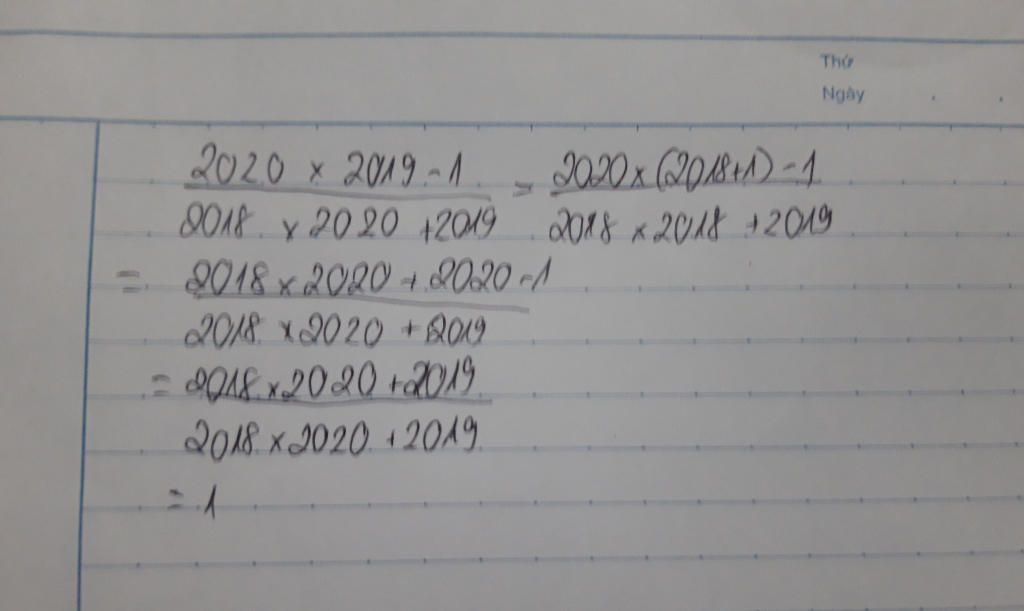 Thứ
Ngày
2020 × 2019 - 1 = 2020 × (2018+1) - 1
2018 × 2020 + 2019 2018 × 2018 + 2019
= 2018 × 2020 + 2020 - 1
2018 × 2020 + 2019
= 2018 × 2020 + 2019
2018 × 2020 + 2019
= 1